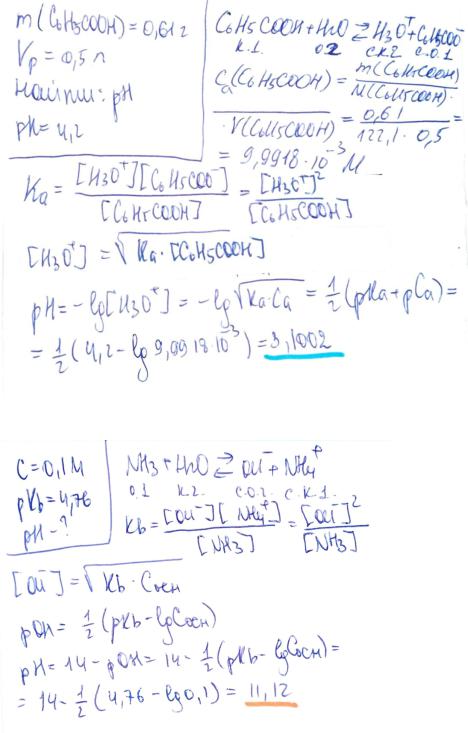 m(C6H5COOH)=0,61 г
Vр=0,5 л
Найти: pH
pK=4,2
C6H5COOH+H2O ⇄ H3O⁺+C6H5COO⁻
к.1. о.2 с.к.2 с.о.1
Ca(C6H5COOH)=m(C6H5COOH)/M(C6H5COOH)·
·V(C6H5COOH)=0,61/122,1·0,5=
=9,9918·10⁻³ M
Ka=[H3O⁺][C6H5COO⁻]/[C6H5COOH]=[H3O⁺]²/[C6H5COOH]
[H3O⁺]=√Ka·[C6H5COOH]
pH=-lg[H3O⁺]=-lg√Ka·Ca=½(pKa+pCa)=
=½(4,2-lg 9,9918·10⁻³)=3,1002
C=0,1M
pKb=4,76
pH-?
NH3+H2O ⇄ OH⁻+NH4⁺
о.1 к.2. с.о.2. с.к.1.
Kb=[OH⁻][NH4⁺]/[NH3]=[OH⁻]²/[NH3]
[OH⁻]=√Kb·Cосн
pOH=½(pKb-lgCосн)
pH=14-pOH=14-½(pKb-lgCосн)=
=14-½(4,76-lg0,1)=11,12